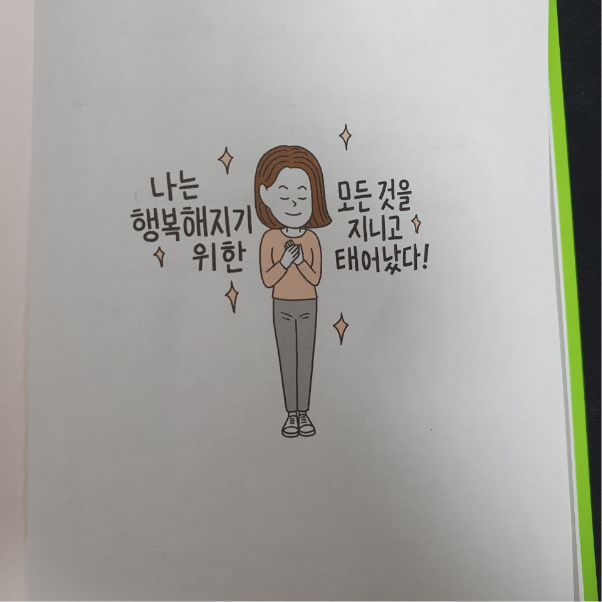 나는
행복해지기
위한
모든 것을
지니고
태어났다!